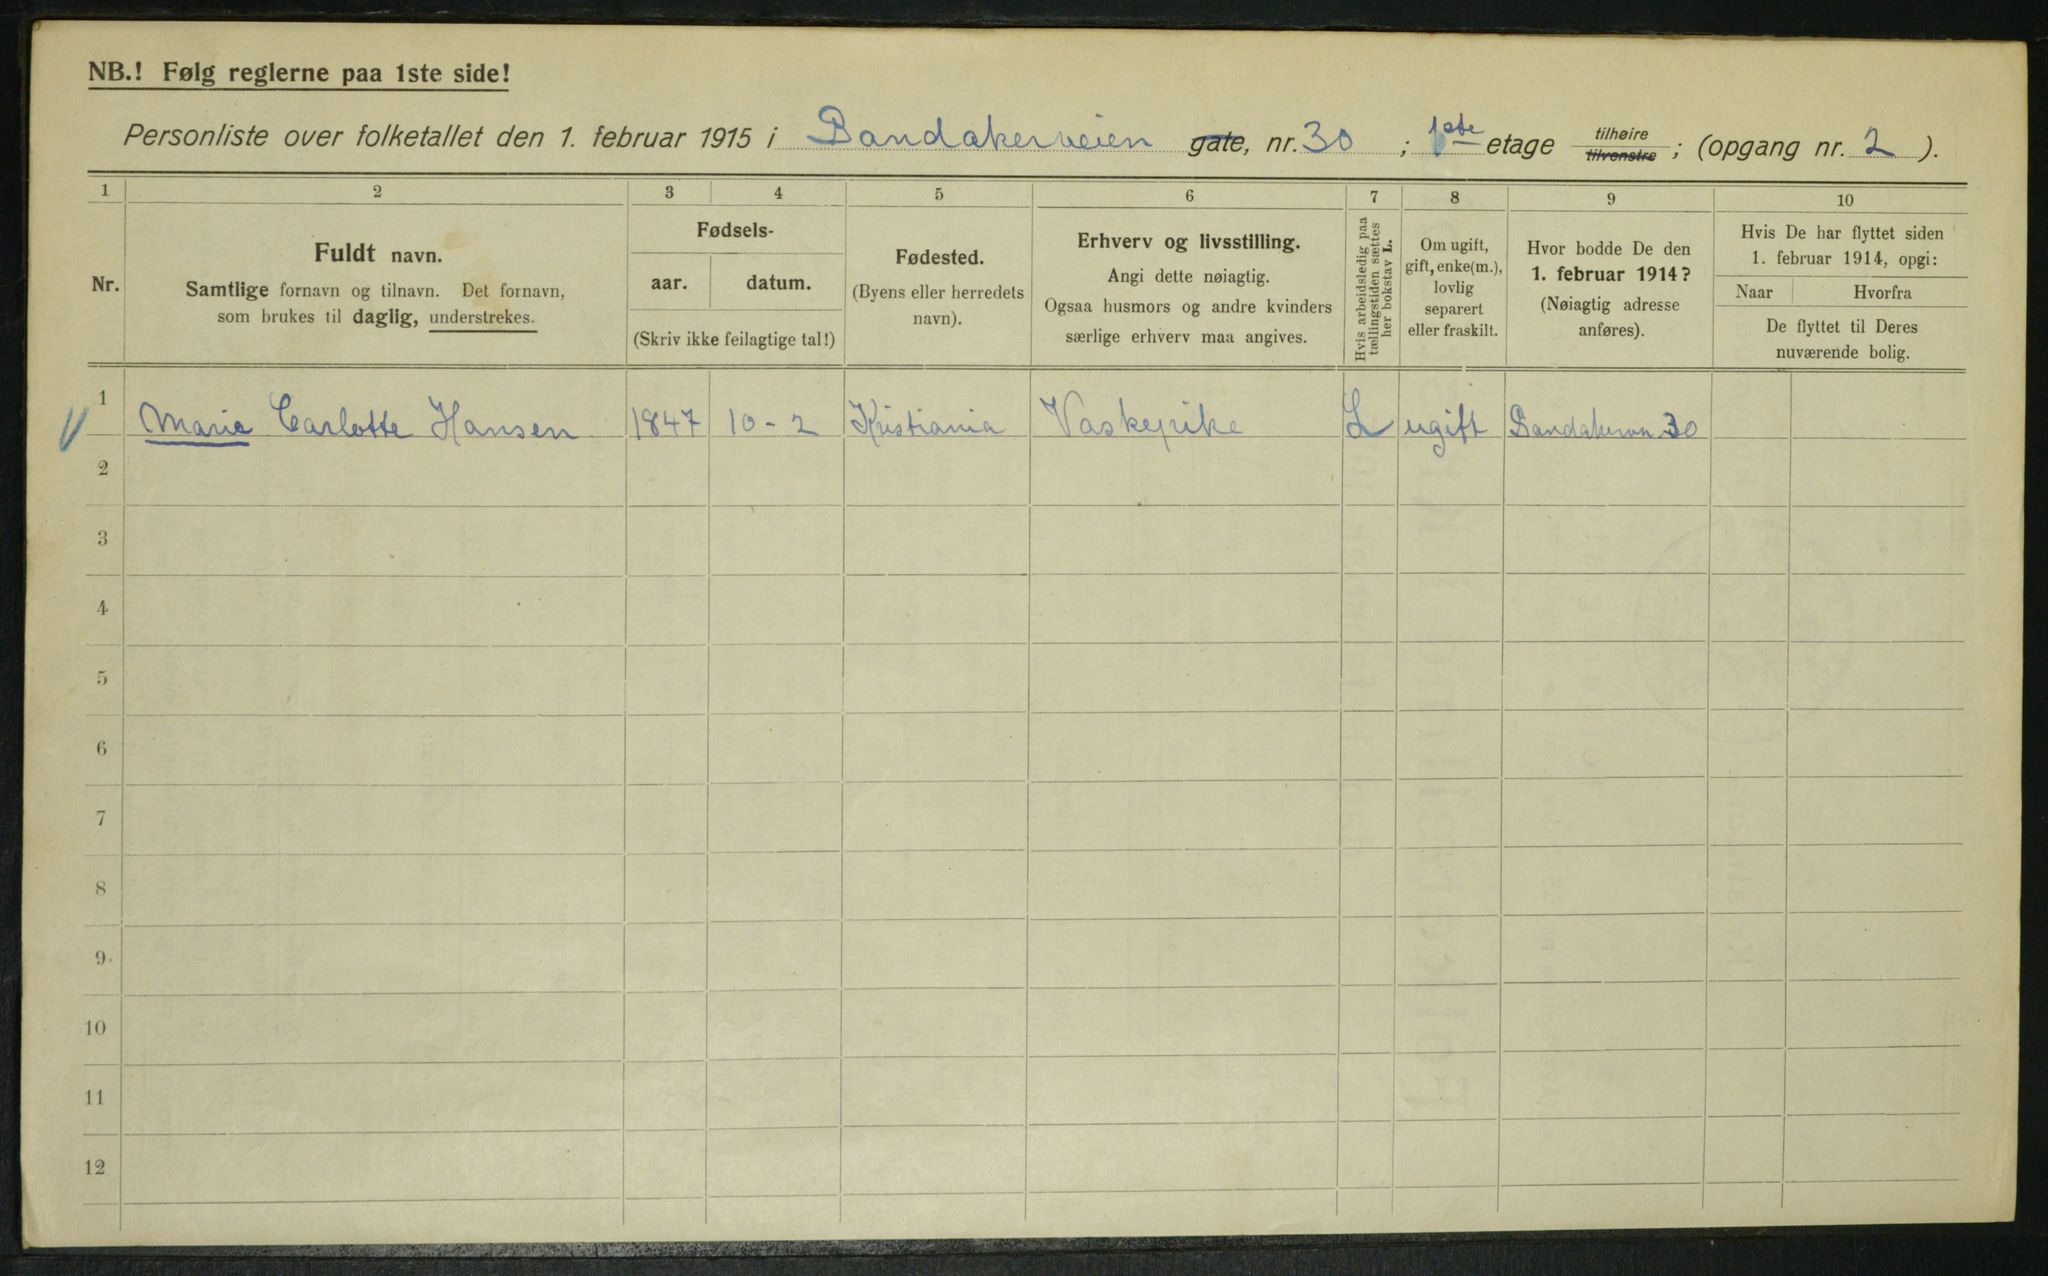 NB.! Følg reglerne paa 1ste side!
Personliste over folketallet den 1. februar 1915 i Sandakerveien gate, nr. 30 ; 1ste etage tilhøire tilvenstre ; (opgang nr. 2 ).
1 2 3 4 5 6 7 8 9 10
Nr.
Fuldt navn.
Samtlige fornavn og tilnavn. Det fornavn,
som brukes til daglig, understrekes.
Fødsels-
aar. datum.
(Skriv ikke feilagtige tal!)
Fødested.
(Byens eller herredets
navn).
Erhverv og livsstilling.
Angi dette nøiagtig.
Ogsaa husmors og andre kvinders
særlige erhverv maa angives.
Hvis arbeidsledig paa
tællingstiden sættes
her bokstav L.
Om ugift,
gift, enke(m.),
lovlig
separert
eller fraskilt.
Hvor bodde De den
1. februar 1914?
(Nøiagtig adresse
anføres).
Hvis De har flyttet siden
1. februar 1914, opgi:
Naar Hvorfra
De flyttet til Deres
nuværende bolig.
1 Marie Carlotte Hansen 1847 10-2 Kristiania Vaskepike L ugift Sandakervn 30
2
3
4
5
6
7
8
9
10
11
12